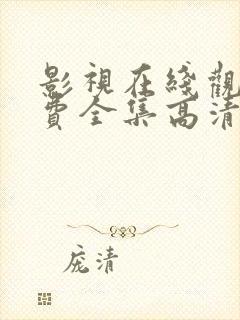 影視在綫觀
費全集高清
庞清